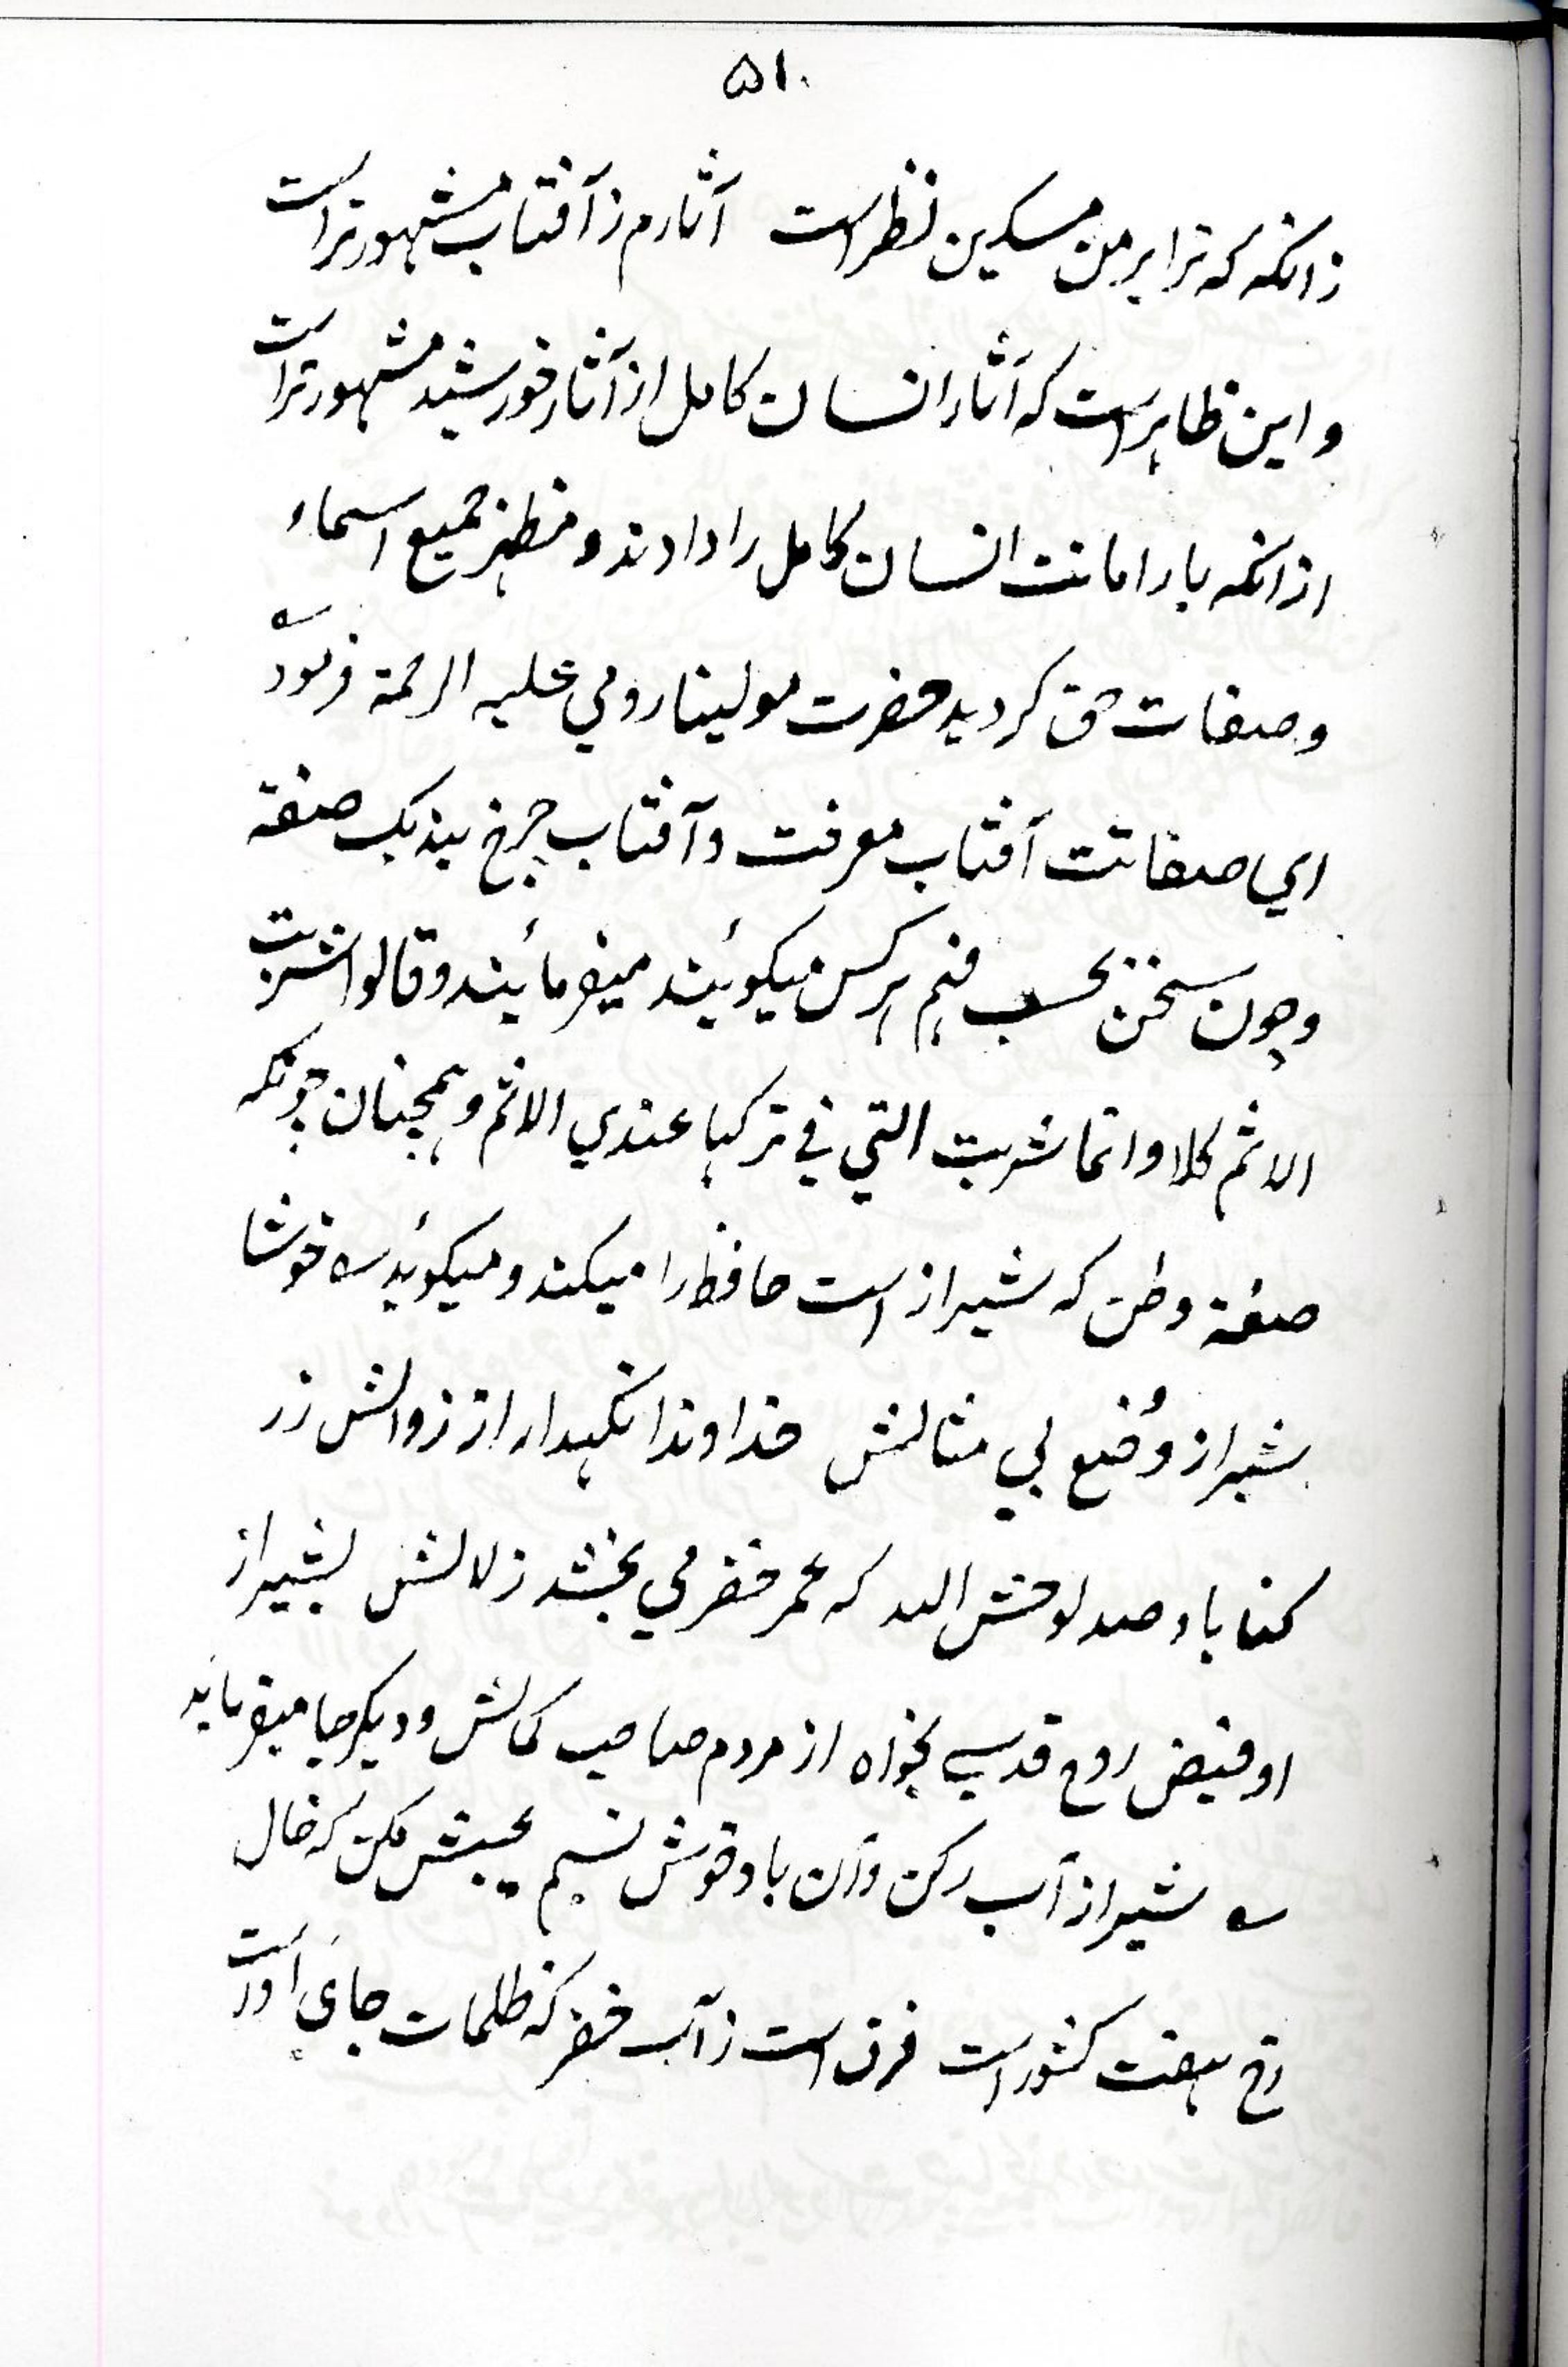 ۵۱۰
زانکه که ترا بر من مسکین نظر است آثارم ز آفتاب مشهورتر است
و این ظاهر است که آثار انسان کامل از آثار خورشید مشهورتر است
ازانکه بار امانت انسان کامل را دادند و مظهر جمیع اسماء
و صفات حق کردید حضرت مولینا رومي علیه الرحمة فرمود ؎
اي صفاتت آفتاب معرفت و آفتاب چرخ بند یک صفة
و چون سخن بحسب فهم هر کس میکوئیند میفرمائیند و قالوا شربت
الاثم کلا و انما شربت التي في ترکها عندي الاثم و همچنان چونکه
صفة وطن که شیراز است حافظ را میکند و میکوید ؎ خوشا
شیراز و وُضع بي مثالش خداوندا نکهدار از زوالش ز ر
کناباد صد لوحش الله که عمر خضر مي بخشد زلالش بشیراز
او فیض روح قدسي بخواه از مردم صاحب کمالش و دیکر جا میفرماید
؎ شیراز آب رکن و آن باد خوش نسیم عیبش مکن که خال
رخ هفت کشور است فرق است ز آب خضر که ظلمات جايِ اوست